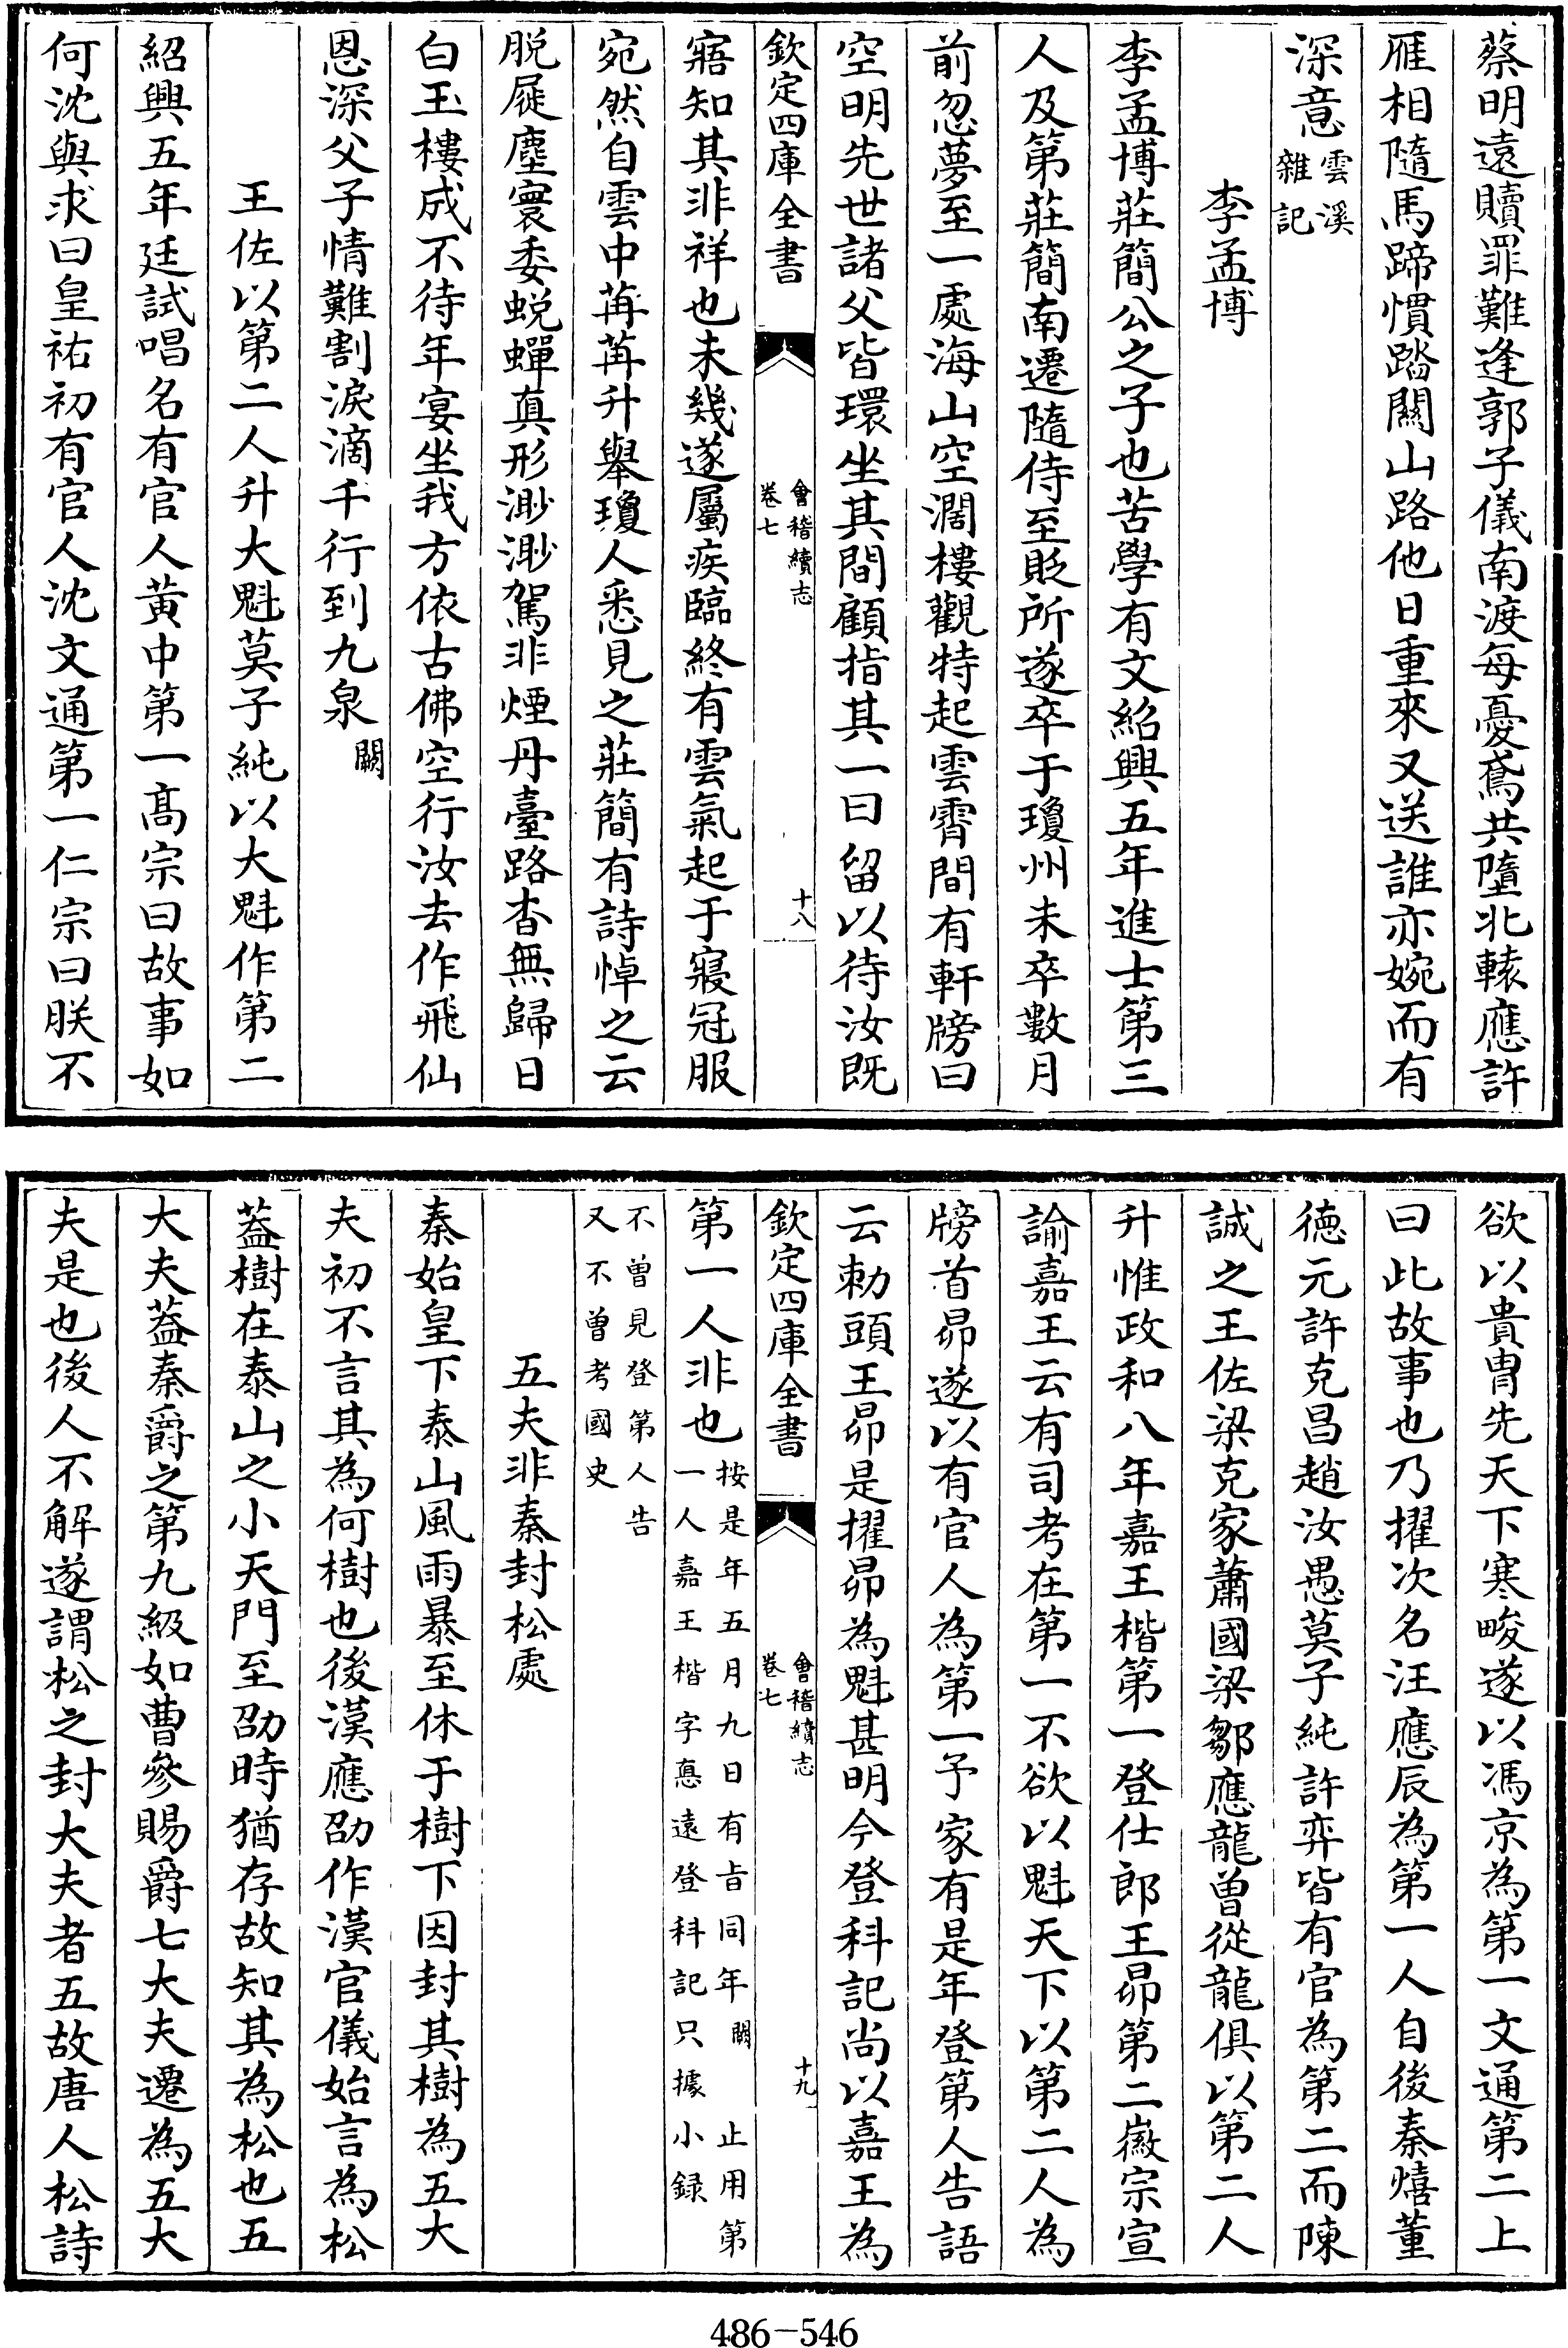 蔡明遠贖罪難逢郭子儀南渡每憂鳶共墮北轅應許
雁相隨馬蹄慣踏關山路他日重來又送誰亦婉而有
深意雲溪雜記
李孟博
李孟博莊簡公之子也苦學有文紹興五年進士第三
人及第莊簡南遷隨侍至貶所遂卒于瓊州未卒數月
前忽夢至一處海山空濶樓觀特起雲霄間有軒牓曰
空明先世諸父皆環坐其間顧指其一曰留以待汝既
欽定四庫全書
會稽續志
卷七
十八
寤知其非祥也未幾遂屬疾臨終有雲氣起于寢冠服
宛然自雲中苒苒升舉瓊人悉見之莊簡有詩悼之云
脱屣塵寰委蜕蟬真形渺渺駕非煙丹臺路杳無歸日
白玉樓成不待年宴坐我方依古佛空行汝去作飛仙
恩深父子情難割淚滴千行到九泉闕
王佐以第二人升大魁莫子純以大魁作第二
紹興五年廷試唱名有官人黄中第一髙宗曰故事如
何沈與求曰皇祐初有官人沈文通第一仁宗曰朕不
欲以貴胄先天下寒畯遂以馮京為第一文通第二上
曰此故事也乃擢次名汪應辰為第一人自後秦熺董
徳元許克昌趙汝愚莫子純許弈皆有官為第二而陳
誠之王佐梁克家蕭國梁鄒應龍曾從龍俱以第二人
升惟政和八年嘉王楷第一登仕郎王昻第二徽宗宣
諭嘉王云有司考在第一不欲以魁天下以第二人為
牓首昻遂以有官人為第一予家有是年登第人告語
云勅頭王昻是擢昻為魁甚明今登科記尚以嘉王為
欽定四庫全書
會稽續志
卷七
十九
第一人非也按是年五月九日有旨同年闕止用第
一人嘉王楷字悳逺登科記只據小録
不曾見登第人告
又不曾考國史
五夫非秦封松處
秦始皇下泰山風雨暴至休于樹下因封其樹為五大
夫初不言其為何樹也後漢應劭作漢官儀始言為松
葢樹在泰山之小天門至劭時猶存故知其為松也五
大夫葢秦爵之第九級如曹參賜爵七大夫遷為五大
夫是也後人不解遂謂松之封大夫者五故唐人松詩
486-546